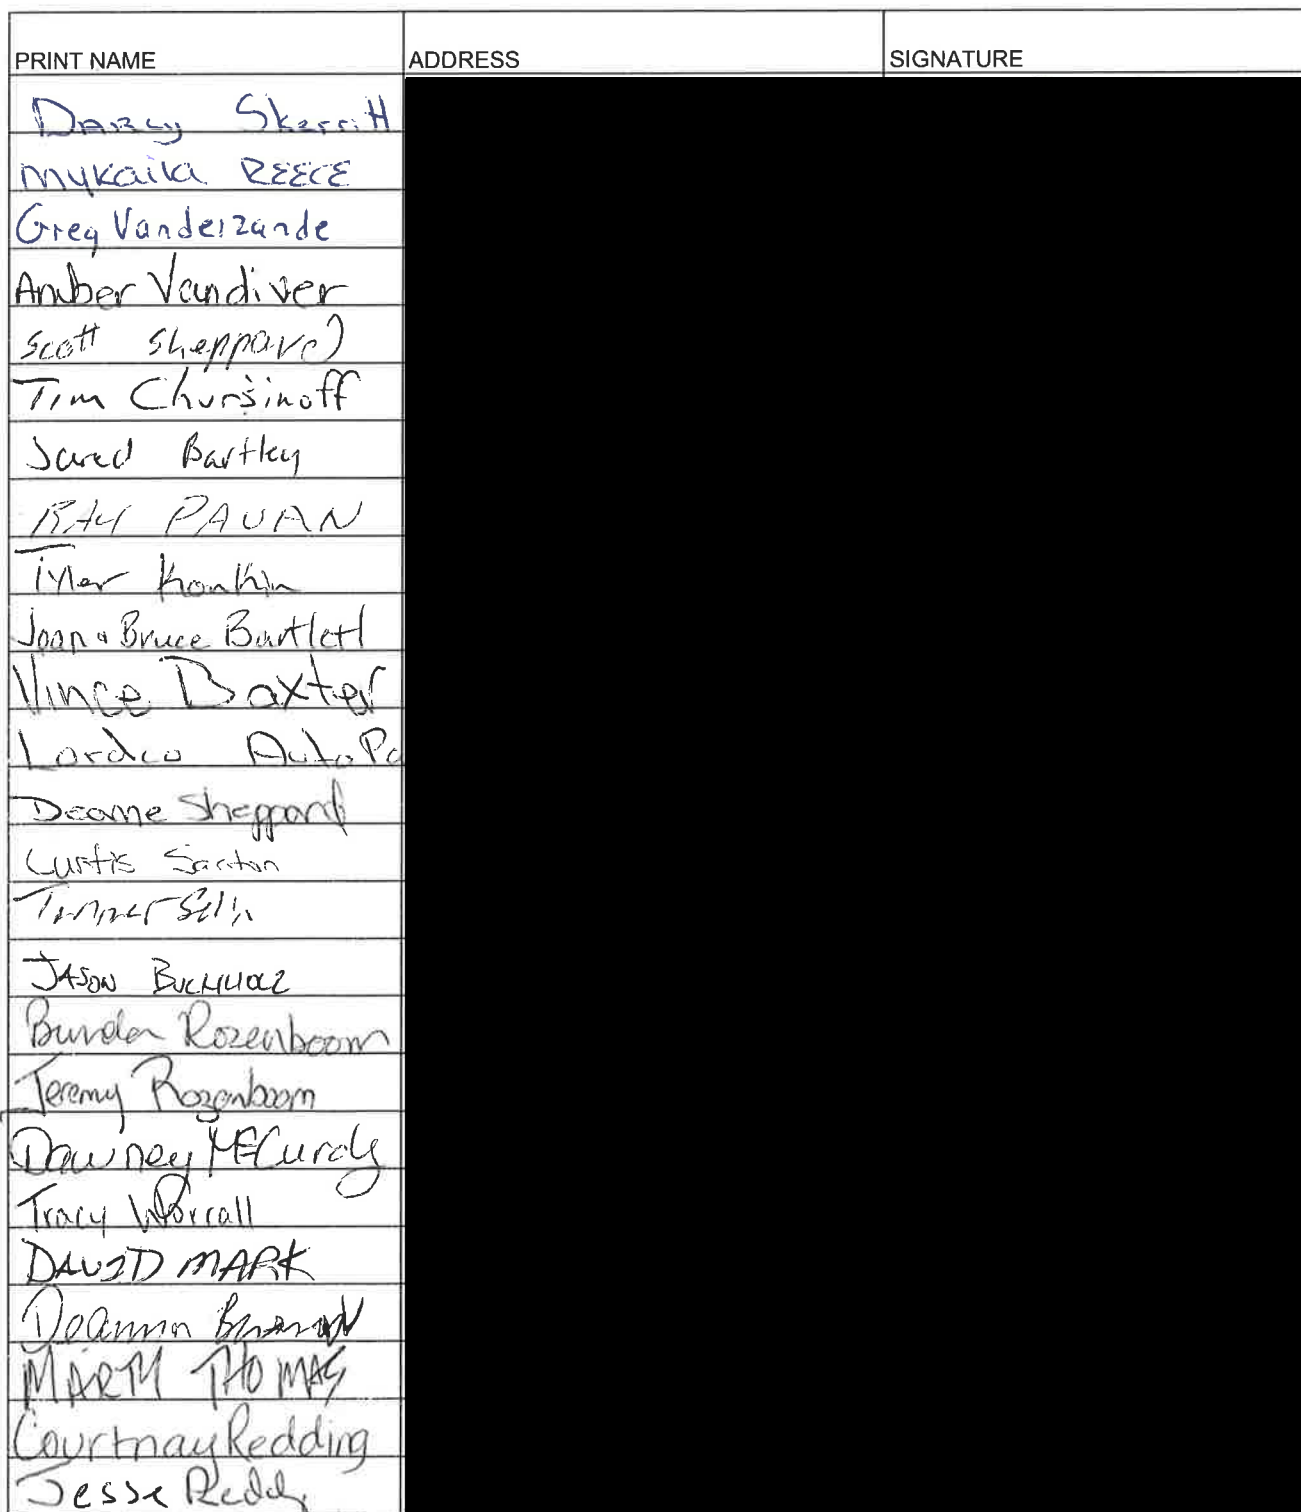 PRINT NAME ADDRESS SIGNATURE
Darcy Skerritt
Mykaila REECE
Greg Vanderzande
Amber Vandiver
Scott Sheppard
Tim Chursinoff
Jared Bartley
RAY PAVAN
Tyler Konkin
Joan & Bruce Bartlett
Vince Baxter
Lordco Auto Pa
Deanne Sheppard
Curtis Santon
Tanner
JASON BUCHHOLZ
Rozenboom
Jeremy Rozenboom
Dawney McCurdy
Tracy Worrall
DAVID MARK
Deanna
MARTY THOMAS
Courtnay Redding
Jesse